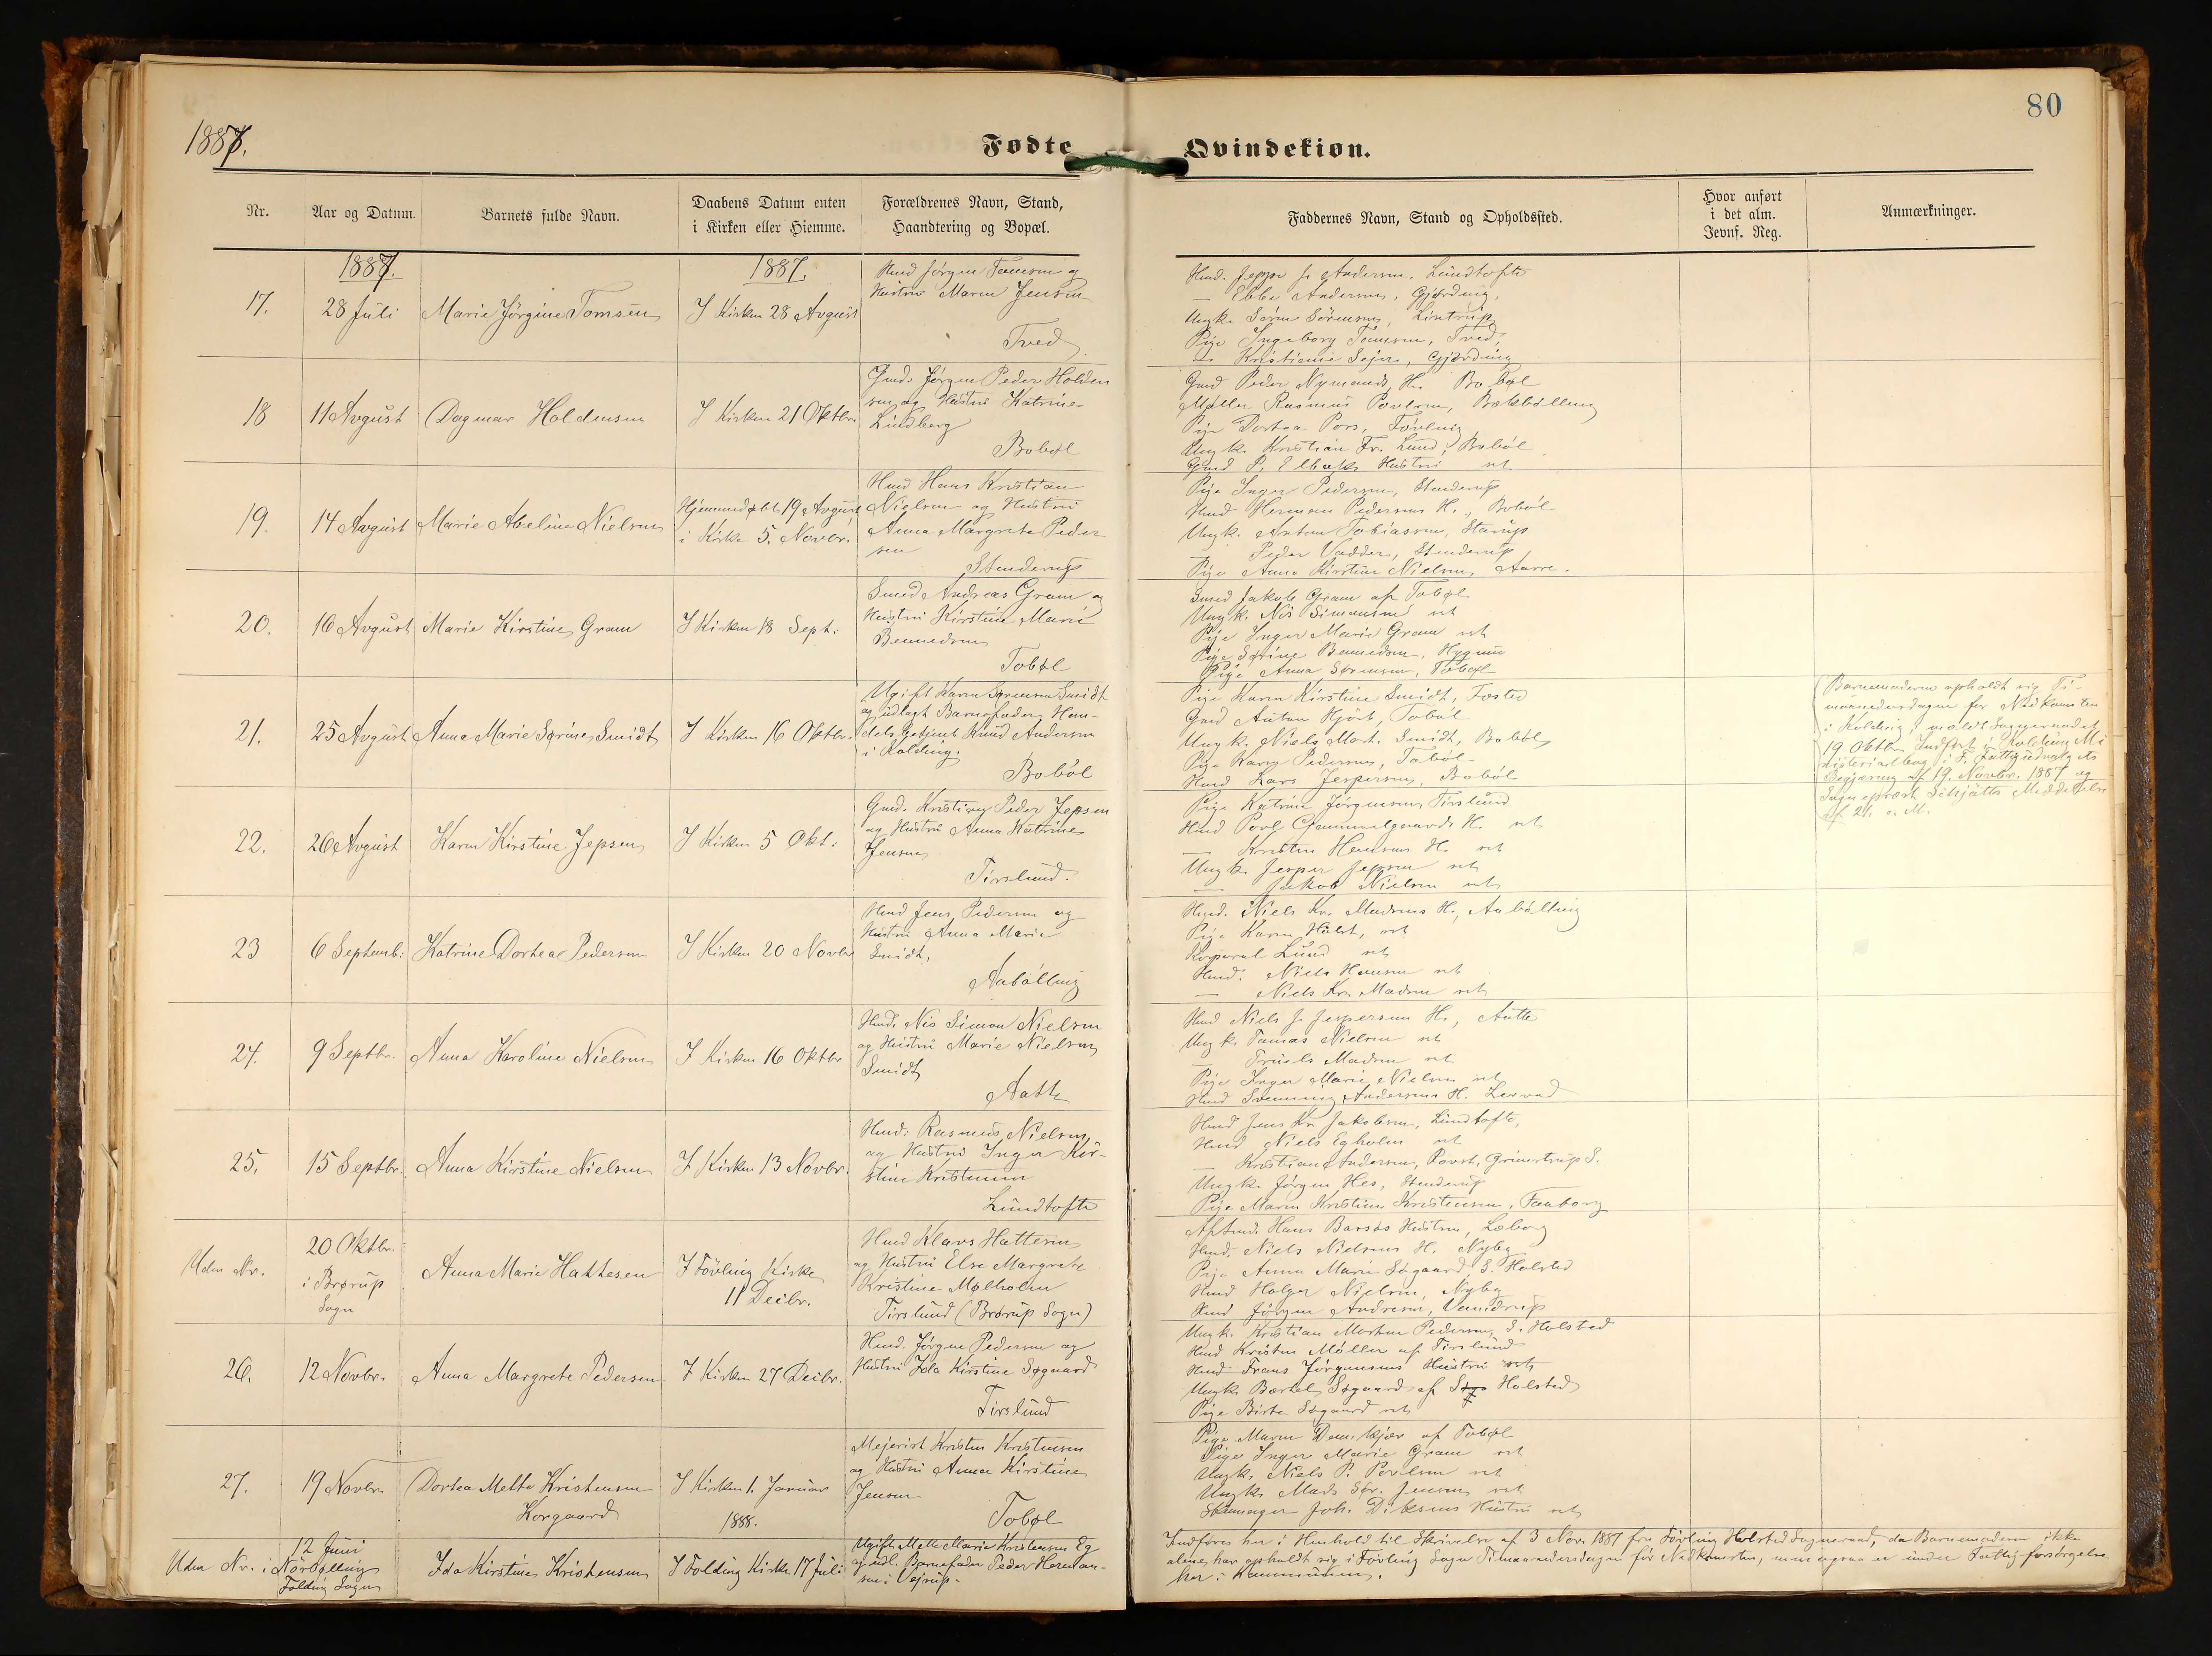 80
1887.
Fødte
Qvindekiøn.
Nr.
Aar og Datum.
Barnets fulde Navn.
Daabens Datum enten
i Kirken eller Hiemme.
Forældrenes Navn, Stand,
Haandtering og Bopæl.
Faddernes Navn, Stand og Opholdssted.
Hvor anført
i det alm.
Jevnf. Reg.
Anmærkninger.
1887.
1887.
17.
28 Juli
Marie Jørgine Tomsen
I Kirken 28 Avgust
Husmd Jørgen Tomsen og
Hustru Maren Jensen
Tved
Husmd. Jeppe J. Andersen, Lundtofte
— Ebbe Andersen, Gjørding,
Ungk. Søren Sørensen, Lintrup
Pige Ingeborg Tomsen, Tved,
— Kristiane Sejer, Gjørding
18
11 Avgust
Dagmar Holdensen
I Kirken 21 Oktbr.
Gmd. Jørgen Peder Holden
sen og Hustru Katrine
Lindberg
Bobøl
Gmd Peder Nymands H. Bobøl
Møller Rasmus Povlsen, Bækbølling
Pige Dortea Pors, Føvling
Ungk. Kristian Fr. Lund, Bobøl
Gmd P. Elbæks Hustru st.
19.
14 Avgust
Marie Abeline Nielsen
Hjemmedøbt 19 Avgust
i Kirke 5. Novbr.
Hmd Hans Kristian
Nielsen og Hustru
Anna Margrete Peder
sen
Stenderup
Pige Inger Pedersen, Stenderup
Hmd Herman Pedersens H., Bobøl
Ungk. Anton Tobiassen, Starup
— Peder Vadder, Stenderup
Pige Anna Kirstine Nielsen, Aarre.
20.
16 Avgust
Marie Kirstine Gram
I Kirken 18 Sept.
Smed Andreas Gram og
Hustru Kirstine Marie
Bennedsen
Tobøl
Smed Jakob Gram af Tobøl
Ungk. Nis Simonsen st
Pige Inger Marie Gram st
Pige Sørine Bennedsen, Hygum
Pige Anna Sørensen, Tobøl
21.
25 Avgust
Anna Marie Sørine Smidt
I Kirken 16 Oktbr.
Ugift Karen Sørensen Smidt
og udlagt Barnefader, Han-
delsbetjent Knud Andersen
i Kolding.
Bobøl
Pige Karen Kirstine Smidt, Fosted
Gmd Anton Hjort, Tobøl
Ungk. Niels Mart. Smidt, Bobøl
Pige Karen Pedersen, Tobøl
Hmd Lars Jespersen, Bobøl
Barnemoderen opholdt sig Ti-
maanedersdagen før Nedkomsten
i Kolding, meldt Sogneraadet
19 Oktbr. Indført i Kolding Mi
nisterialbog i F. Fattigudvalgets
Begjæring af 19. Novbr. 1887 og
Sognepræst Schjøtts Meddelelse
af 21. s. M.
22.
26 Avgust
Karen Kirstine Jepsen
I Kirken 5 Okt.
Gmd. Kristian Peder Jepsen
og Hustru Anna Katrine
Jensen
Tirslund.
Pige Katrine Jørgensen, Tirslund
Hmd Povl Gammelgaards H. st
— Kristen Hansens H. st
Ungk. Jesper Jepsen st
— Jakob Nielsen st
23
6 Septemb.
Katrine Dortea Pedersen
I Kirken 20 Novbr
Hmd Jens Pedersen og
Hustru Anna Marie
Smidt,
Aabølling
Hmd. Niels Kr. Madsens H., Aabølling
Pige Karen Hulst, st
Korporal Lund st
Hmd. Niels Hansen st
— Niels Kr. Madsen st
24.
9 Septbr.
Anna Karoline Nielsen
I Kirken 16 Oktbr
Hmd. Nis Simon Nielsen
og Hustru Marie Nielsen
Smidt
Aatte
Hmd Niels J. Jespersens H., Aatte
Ungk. Tomas Nielsen st
— Truels Madsen st
Pige Inger Marie Nielsen st
Hmd Svenning Andersens H. Lervad
25.
15 Septbr.
Anna Kirstine Nielsen
I Kirken 13 Novbr.
Hmd: Rasmus Nielsen,
og Hustru Inger Kir-
stine Kristensen
Lundtofte
Hmd Jens Kr. Jakobsen, Lundtofte,
Hmd Niels Egholm st
— Kristian Andersen, Roust, Grimstrup S.
Ungk. Jørgen Hes, Stenderup
Pige Maren Kirstine Kristensen, Faaborg
Uden Nr.
20 Oktbr.
i Brørup
Sogn
Anna Marie Hattesen
I Føvling Kirke
11 Decbr.
Hmd Klavs Hattesen
og Hustru Else Margrete
Kristine Mølholm
Tirslund (Brørup Sogn)
Aftmd. Hans Barsøs Hustru, Læborg
Hmd. Niels Nielsens H. Nyby
Pige Anna Marie Søgaard, S. Holsted
Hmd Holger Nielsen, Nyby
Hmd Jørgen Andresen, Vamdrup
26.
12 Novbr.
Anna Margrete Pedersen
I Kirken 27 Decbr.
Hmd. Jørgen Pedersen og
Hustru Ida Kirstine Søgaard
Tirslund
Ungk. Kristian Morten Pedersen, S. Holsted
Hmd Kristen Møller af Tirslund
Hmd Frans Jørgensens Hustru st
Ungk. Bertel Søgaard af Holsted
Pige Birte Søgaard st
27.
19 Novbr.
Dortea Mette Kristensen
Korgaard
I Kirken 1. Januar
1888.
Mejerist Kristen Kristensen
og Hustru Anna Kirstine
Jensen
Tobøl
Pige Maren Damkjær af Tobøl
Pige Inger Marie Gram st
Ungk. Niels P. Povlsen st
Ungk. Mads Sør. Jensen st
Joh. Hustru st
Uden Nr.
12 Juni
i Nørbølling
Folding Sogn
Ida Kirstine Kristensen
I Folding Kirke 17 Juli
Ugift Mette Marie Kristensen Eg
og udl. Barnefader Peder Herman-
sen i Vejrup.
Indføres her i Henhold til Skrivelse af 3 Nov. 1887 fra Føvling Holsted Sogneraad, da Barnemoderen ikke
alene har opholdt sig i Føvling Sogn Timaanedersdagen før Nedkomsten, men ogsaa er under Fattigforsørgelse
her i Kommunen.